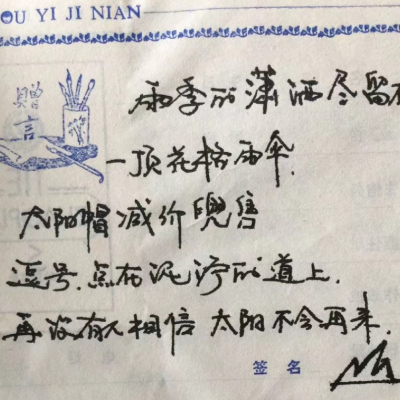 OU YI JI NIAN
赠言
雨季的潇洒尽留在
一顶花格雨伞.
太阳帽减价兜售
逗号.点在泥泞的道上.
再没有人相信太阳不会再来.
签名